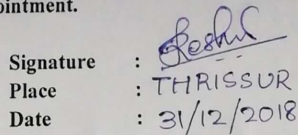 ointment.
Signature :
Place : THRISSUR
Date : 31/12/2018